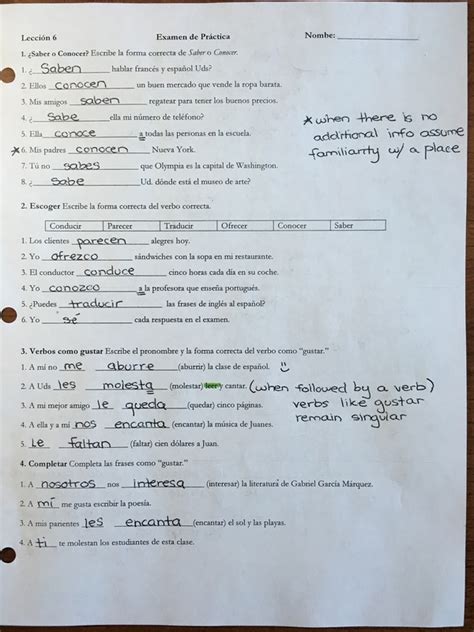 Lección 6 Examen de Práctica Nombre: ____________
1. ¿Saber o Conocer? Escribe la forma correcta de Saber o Conocer.
1. ¿ Saben hablar francés y español Uds?
2. Ellos conocen un buen mercado que vende la ropa barata.
3. Mis amigos saben regatear para tener los buenos precios.
4. ¿ Sabe ella mi número de teléfono?
5. Ella conoce a todas las personas en la escuela.
* 6. Mis padres conocen Nueva York.
7. Tú no sabes que Olympia es la capital de Washington.
8. ¿ Sabe Ud. dónde está el museo de arte?
* when there is no
additional info assume
familiarity w/ a place
2. Escoger Escribe la forma correcta del verbo correcto.
Conducir Parecer Traducir Ofrecer Conocer Saber
1. Los clientes parecen alegres hoy.
2. Yo ofrezco sándwiches con la sopa en mi restaurante.
3. El conductor conduce cinco horas cada día en su coche.
4. Yo conozco a la profesora que enseña portugués.
5. ¿Puedes traducir las frases de inglés al español?
6. Yo sé cada respuesta en el examen.
3. Verbos como gustar Escribe el pronombre y la forma correcta del verbo como "gustar."
1. A mí no me aburre (aburrir) la clase de español.
2. A Uds les molesta (molestar) leer y cantar. (when followed by a verb)
verbs like gustar
remain singular
3. A mi mejor amigo le queda (quedar) cinco páginas.
4. A ella y a mí nos encanta (encantar) la música de Juanes.
5. Le faltan (faltar) cien dólares a Juan.
4. Completar Completa las frases como "gustar."
1. A nosotros nos interesa (interesar) la literatura de Gabriel García Márquez.
2. A mí me gusta escribir la poesía.
3. A mis parientes les encanta (encantar) el sol y las playas.
4. A ti te molestan los estudiantes de esta clase.